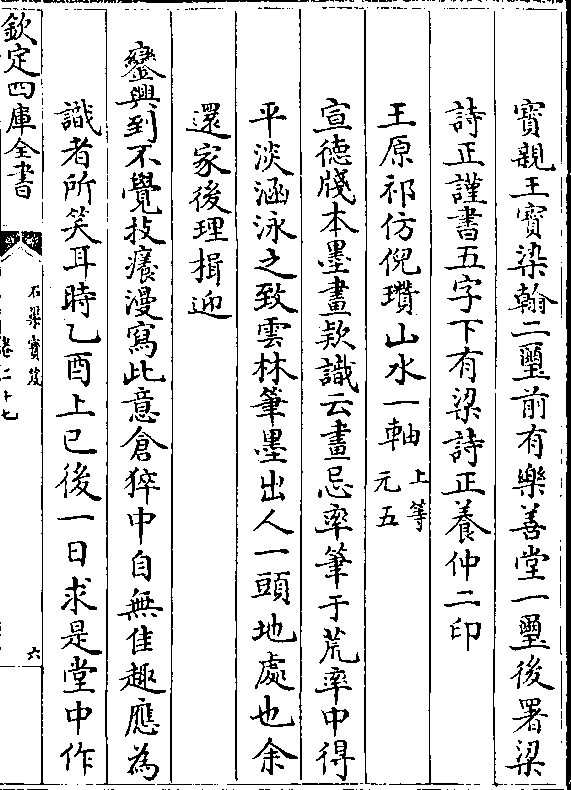 寳親王寳染翰二璽前有樂善堂一璽後署梁
詩正謹書五字下有梁詩正養仲二印
王原祁仿倪瓚山水一軸 上等 元五
宣德牋本墨畫欵識云畫忌率筆于荒率中得
平淡涵泳之致雲林筆墨出人一頭地處也余
還家後理揖迎
鑾興到不覺技癢漫寫此意倉猝中自無佳趣應為
識者所笑耳時乙酉上巳後一日求是堂中作
欽定四庫全書
石渠寳笈
卷二十七
六